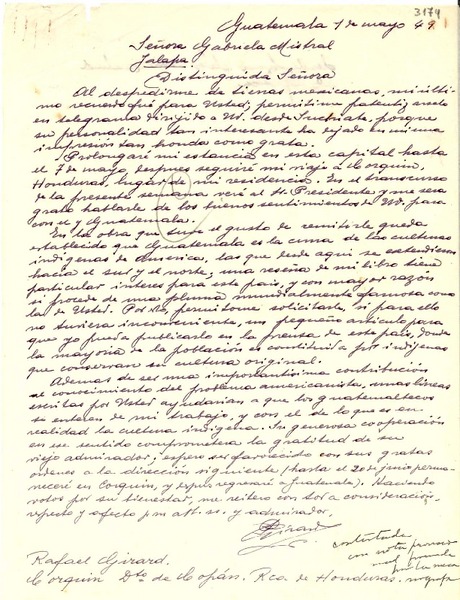 3174
Guatemala 1 de mayo 49.
Señora Gabriela Mistral
Jalapa
Distinguida Señora
Al despedirme de tierras mexicanas, mi últi-
mo recuerdo fué para Usted; permitíme patentizarselo
en telegrama dirijido a Ud. desde Suchiate, porque
su personalidad tan interesante ha dejado en mi una
impresión tan honda como grata.
Prolongaré mi estancia en esta capital hasta
el 7 de mayo, despues seguiré mi viaje a Corquín,
Honduras, lugar de mi residencia. En el transcurso
de la presente semana veré al Sr. Presidente y me será
grato hablarle de los buenos sentimientos de Ud. para
con el y Guatemala.
En la obra que tuve el gusto de remitirle queda
establecido que Guatemala es la cuna de las culturas
indígenas de America, las que desde aquí se extendieron
hacia el sur y el norte; una reseña de mi libro tiene
particular interes para este país, y con mayor razón
si procede de una pluma mundialmente famosa como
la de Usted. Por ello, permitome solicitarle, si para ello
no tuviera inconveniente, un pequeño articulo para
que yo pueda publicarlo en la prensa de este país, donde
la mayoría de la población es constituida por indígenas
que conservan su cultura original.
Ademas de ser una importantísima contribución
al conocimiento del problema americanista, unas líneas
escritas por Usted ayudarian a que los guatemaltecos
se enteren de mi trabajo, y con el de lo que es en
realidad la cultura indígena. Su generosa cooperación
en ese sentido comprometera la gratitud de su
viejo admirador; espero ser favorecido con sus gratas
ordenes a la dirección siguiente (hasta el 20 de junio perma-
neceré en Corquín, y despues regresaré a Guatemala). Haciendo
votos por su bienestar, me reitero con toda consideración,
respeto y afecto su att. ss. y admirador,
RGirard
Rafael Girard.
Corquín Dto de Copán. Rca. de Honduras.
contestada
con nota
mal